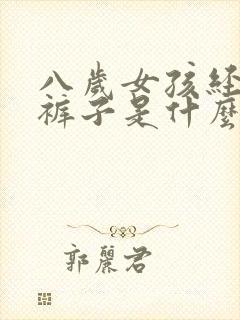 八歲女孩經
褲子是什麼
郭麗君